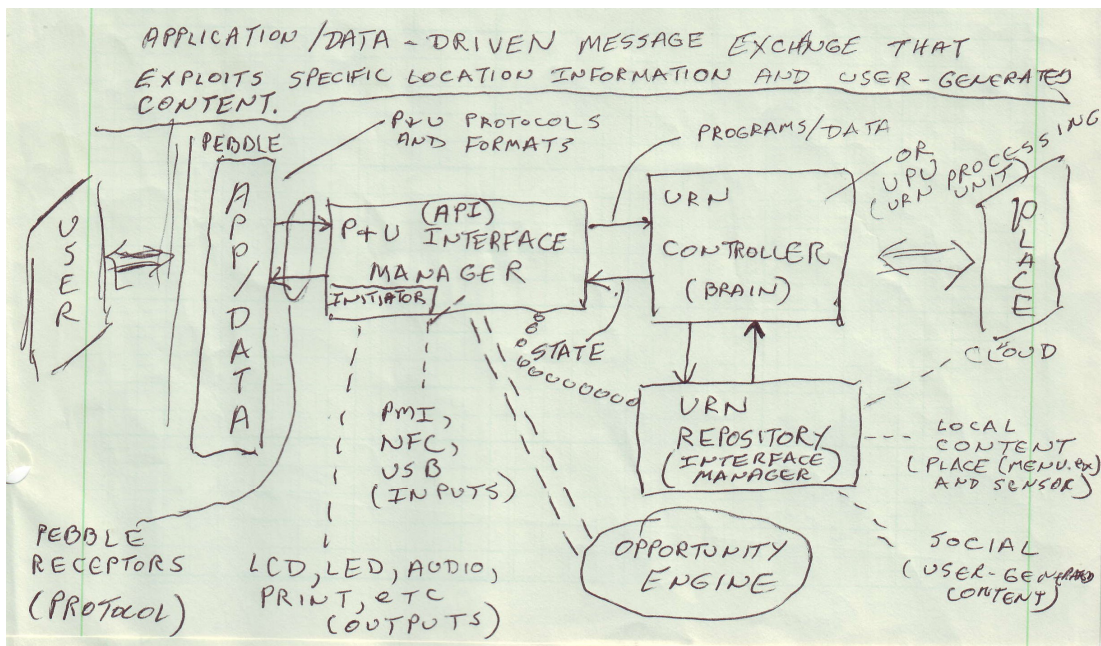 APPLICATION/DATA-DRIVEN MESSAGE EXCHANGE THAT
EXPLOITS SPECIFIC LOCATION INFORMATION AND USER-GENERATED
CONTENT.
USER
PEBDLE
APP/DATA
P+U PROTOCOLS
AND FORMATS
P+U (API)
INTERFACE
MANAGER
INITIATOR
PROGRAMS/DATA
STATE
URN
CONTROLLER
(BRAIN)
OR
UPU
(URN PROCESSING
UNIT)
PLACE
URN
REPOSITORY
(INTERFACE
MANAGER)
CLOUD
LOCAL
CONTENT
(PLACE (MENU.ex)
AND SENSOR)
SOCIAL
(USER-GENERATED
CONTENT)
OPPORTUNITY
ENGINE
PMI,
NFC,
USB
(INPUTS)
LCD, LED, AUDIO,
PRINT, eTC
(OUTPUTS)
PEBBLE
RECEPTORS
(PROTOCOL)